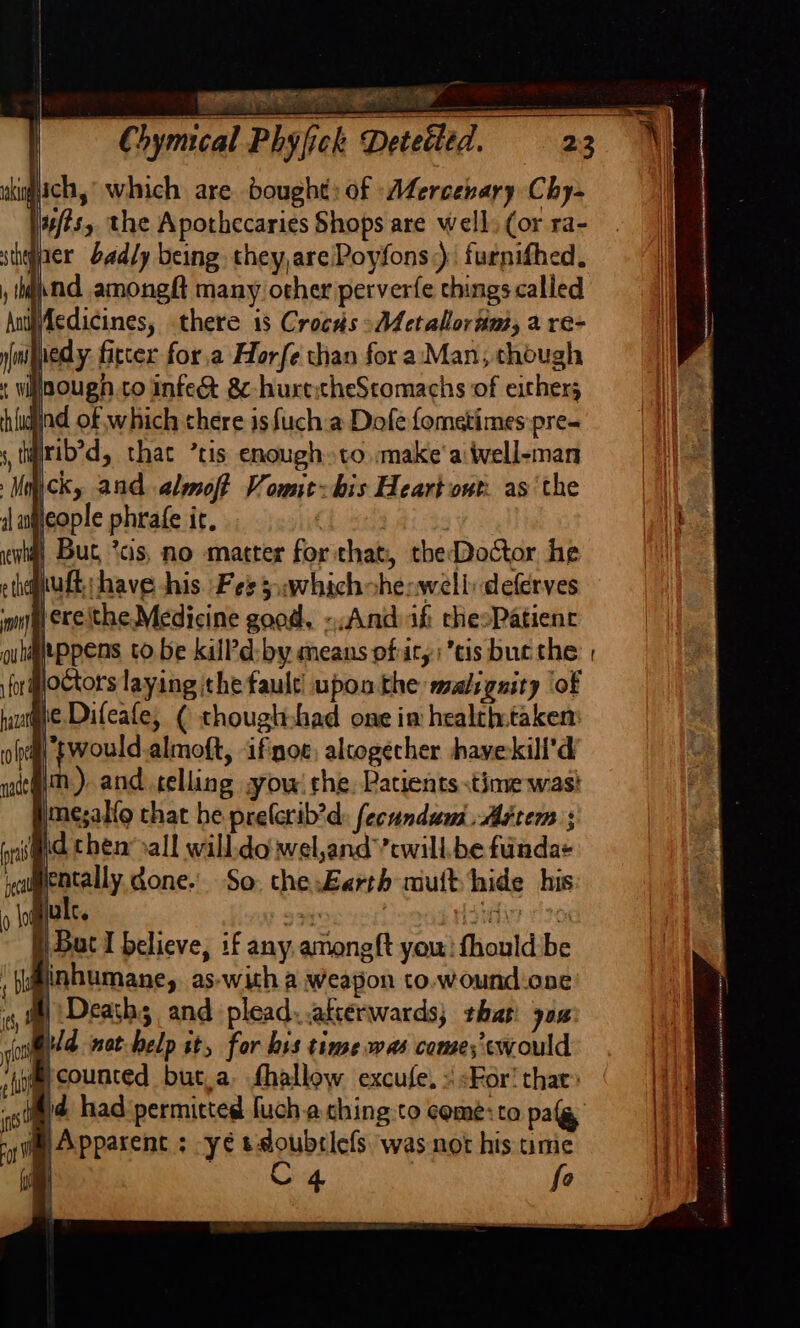 Chymical Phyſick Detected. 23
which are bought of Mercenary Chy-
the Apothecaries Shops are well (or ra-
badly being they are Poyſons) furniſhed.
amongſt many other perverſe things called
Medicines, there is Crocus Metallorum, a re-
fitter for a Horſe than for a Man, though
to infect & hurt the Stomachs of either;
of which there is ſuch a Doſe ſometimes pre-
that 'tis enough to make a well-man
and almoſt Vomit his Heart out as the
phraſe it.
But 'tis, no matter for that, the Doctor he
have his Fees, which he well deſerves
the Medicine good. And if the Patient
to be kill'd by means of it, 'tis but the
laying the fault upon the malignity of
Diſeaſe, ( though had one in health taken
would almoſt, if not, altogether have kill'd
and telling you the Patients time was
alſo that he preſcrib'd ſecundum Artem ;
then all will do wel, and 'twill be funda-
done. So the Earth muſt hide his
But I believe, if any amongſt you ſhould be
inhumane, as with a weapon to wound one
Death; and plead afterwards, that you
not help it, for his time was come, 'twould
counted but a ſhallow excuſe. For that
had permitted ſuch a thing to come to paſs,
Apparent : yet doubtleſs was not his time
C 4 ſo